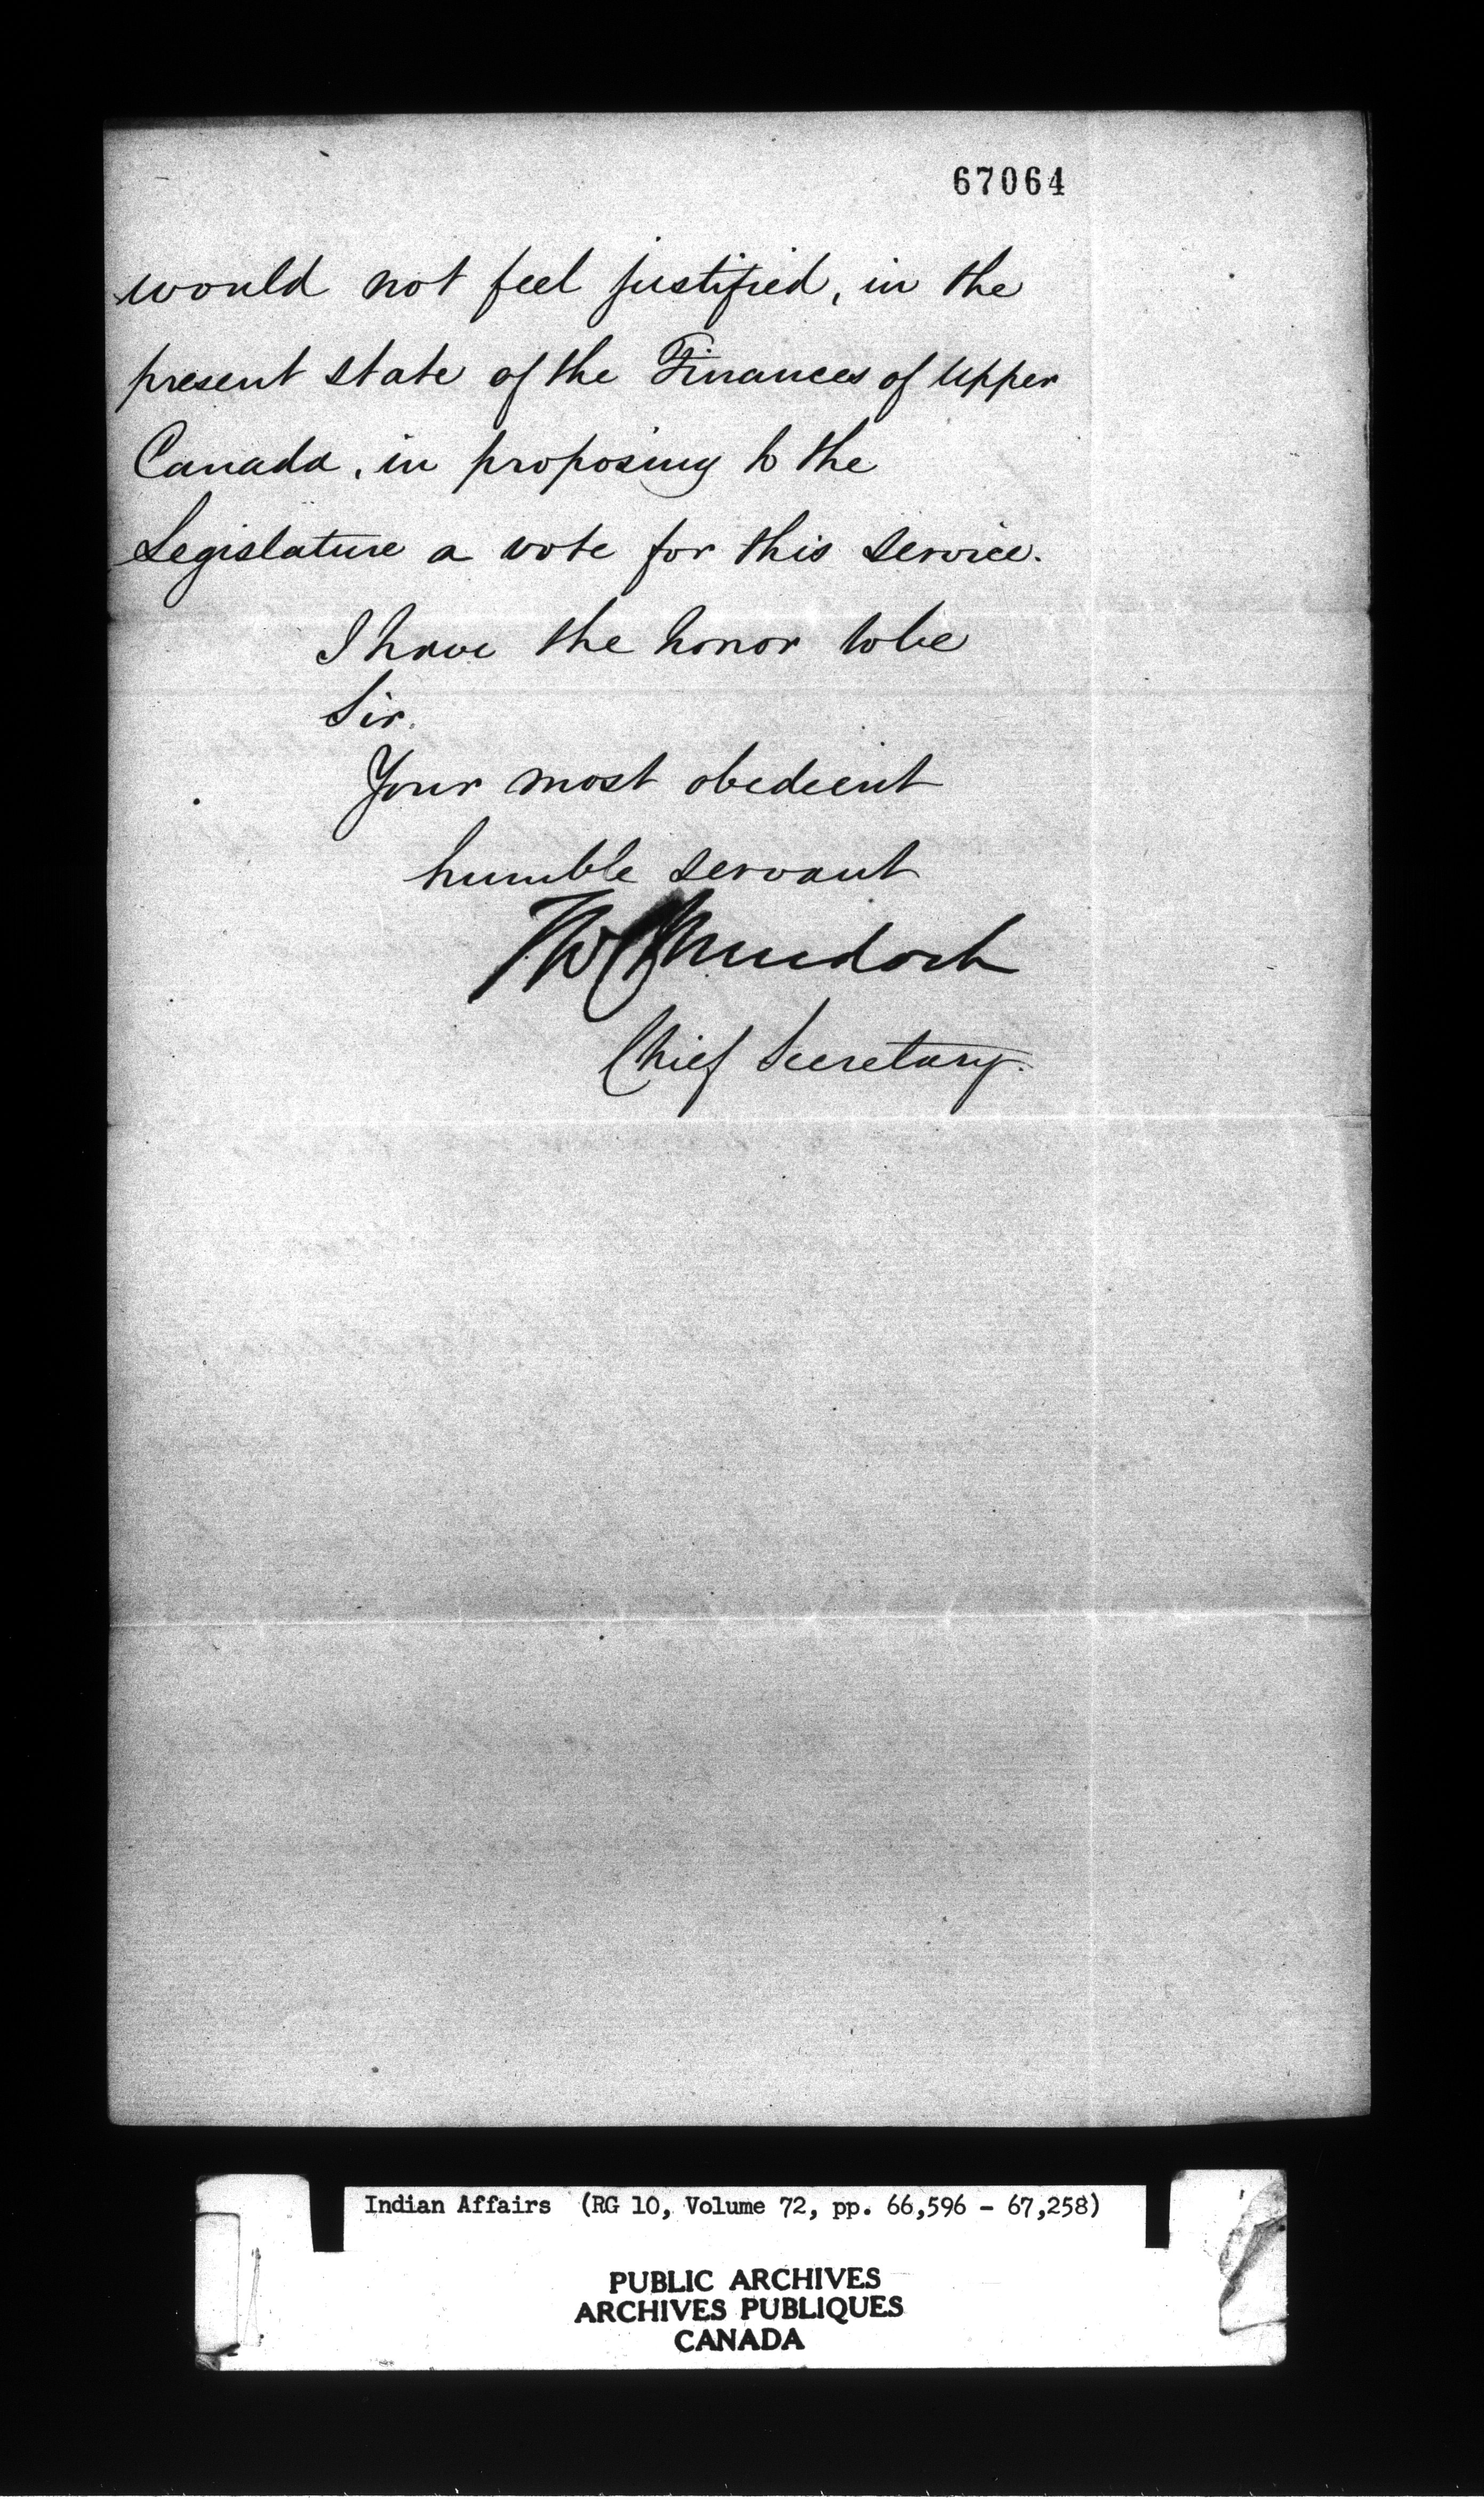 67064
would not feel justified, in the
present state of the Finances of Upper
Canada, in proposing to the
Legislature a vote for this service.
I have the honor to be
Sir.
Your most obedient
humble servant
TWC Murdoch
Chief Secretary.
Indian Affairs (RG 10, Volume 72, pp. 66,596 - 67,258)
PUBLIC ARCHIVES
ARCHIVES PUBLIQUES
CANADA